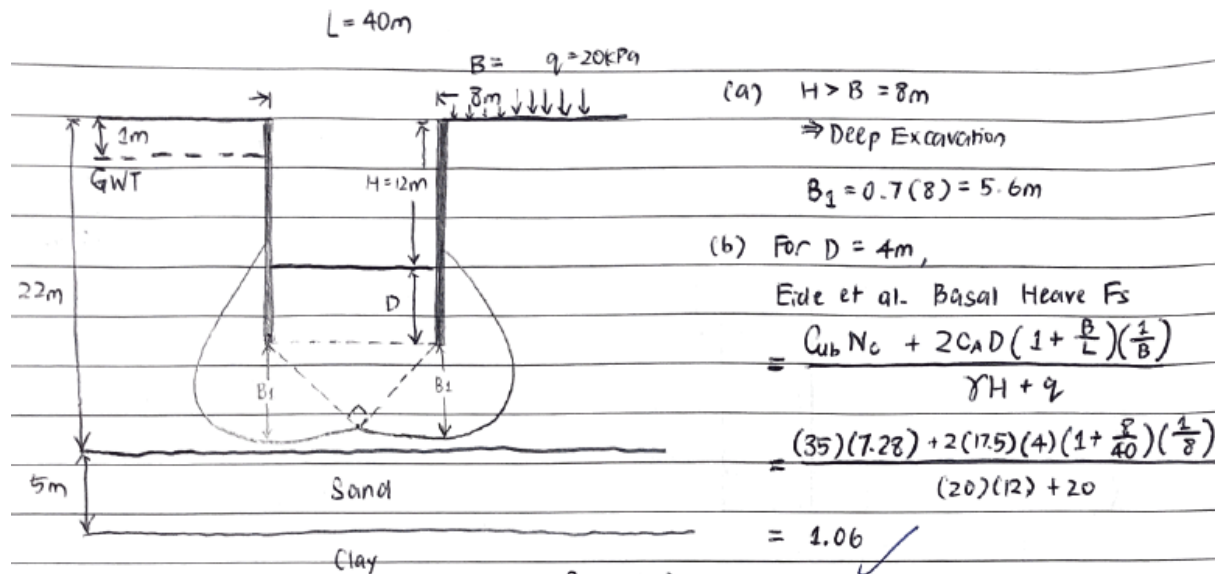 L = 40m
B = 8m
q = 20kPa
1m
GWT
H = 12m
22m
D
B1
B1
5m
Sand
Clay
(a) H > B = 8m
⇒ Deep Excavation
B₁ = 0.7(8) = 5.6m
(b) For D = 4m,
Eide et al. Basal Heave Fs
= (C_ub N_c + 2C_A D(1 + B/L)(1/B)) / (γH + q)
= ((35)(7.28) + 2(17.5)(4)(1 + 8/40)(1/8)) / ((20)(12) + 20)
= 1.06